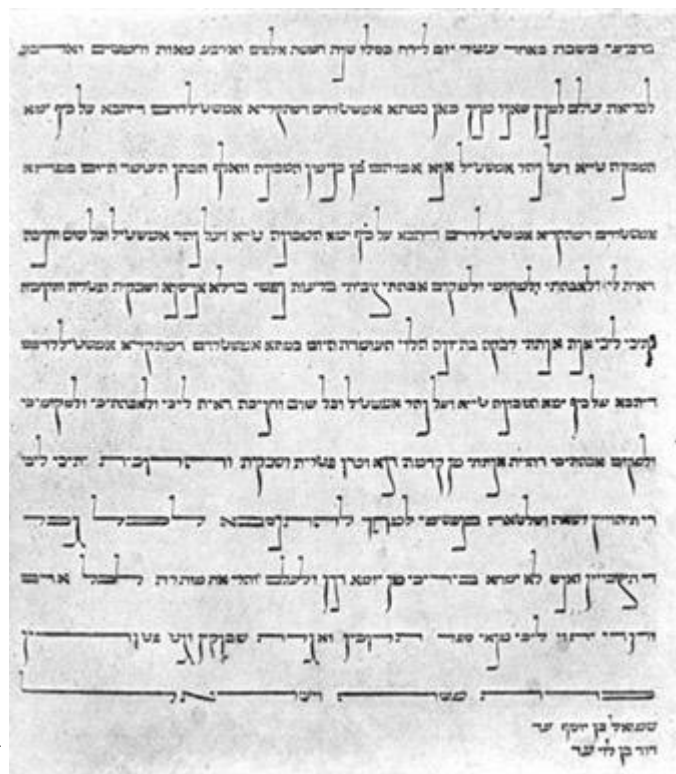 ברביעי בשבת באחד עשר יום לירח כסלו שנת חמשת אלפים וארבע מאות וחמשים
לבריאת עולם למנין שאנו מנין כאן במתא אמשטילרדם דיתבא על כיף ימא
ועל נהר אמשטיל אנא אברהם בן העומד היום במתא
אמשטרדם דמתקריא אמשטילרדם דיתבא על כיף ימא ועל נהר אמשטיל וכל שום וחניכה
דאית לי ולאבהתי ולמקומי ולמקום אבהתי צביתי ברעות נפשי בדלא אניסנא ושבקית ופטרית ותרוכית
יתיכי ליכי אנת אנתתי רבקה בת יונה הלוי העומדת היום במתא אמשטרדם דמתקריא אמשטילרדם
דיתבא על כיף ימא ועל נהר אמשטיל וכל שום וחניכה דאית ליכי ולאבהתיכי ולמקומיכי
ולמקום אבהתיכי דהוית אנתתי מן קדמת דנא וכדו פטרית ושבקית ותרוכית יתיכי ליכי
די תיהוויין רשאה ושלטאה בנפשיכי למהך להתנסבא לכל גבר
די תיצבייין ואנש לא ימחא בידיכי מן יומא דנן ולעלם והרי את מותרת לכל אדם
ודן די יהוי ליכי מנאי ספר תרוכין ואגרת שבוקין וגט פטורין
כדת משה וישראל
שמואל בן יוסף עד
דוד בן לוי עד